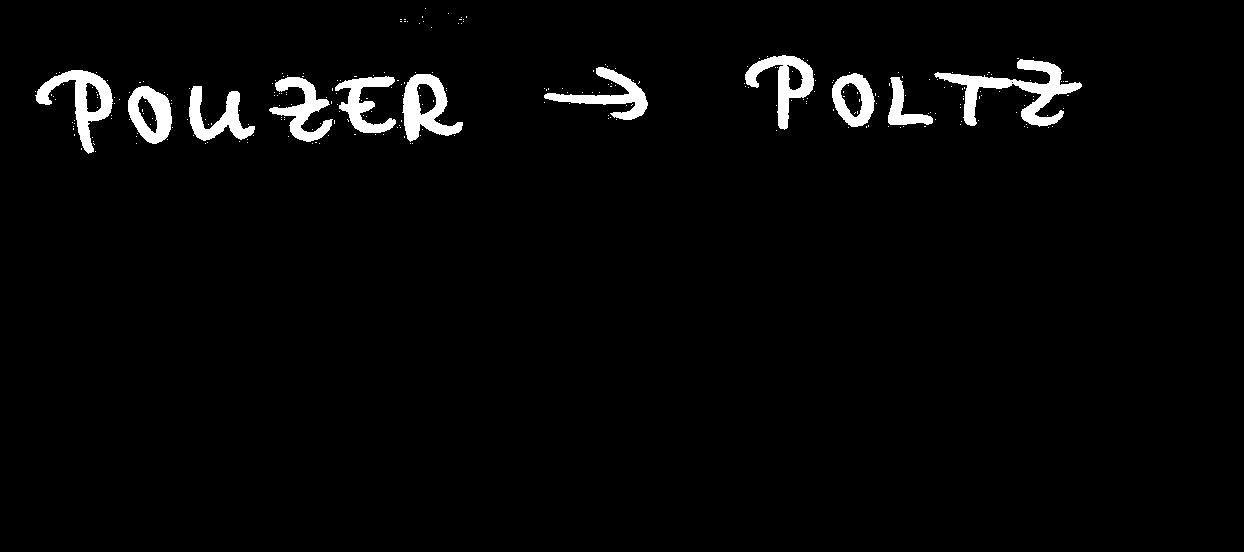 POUZER → POLTZ